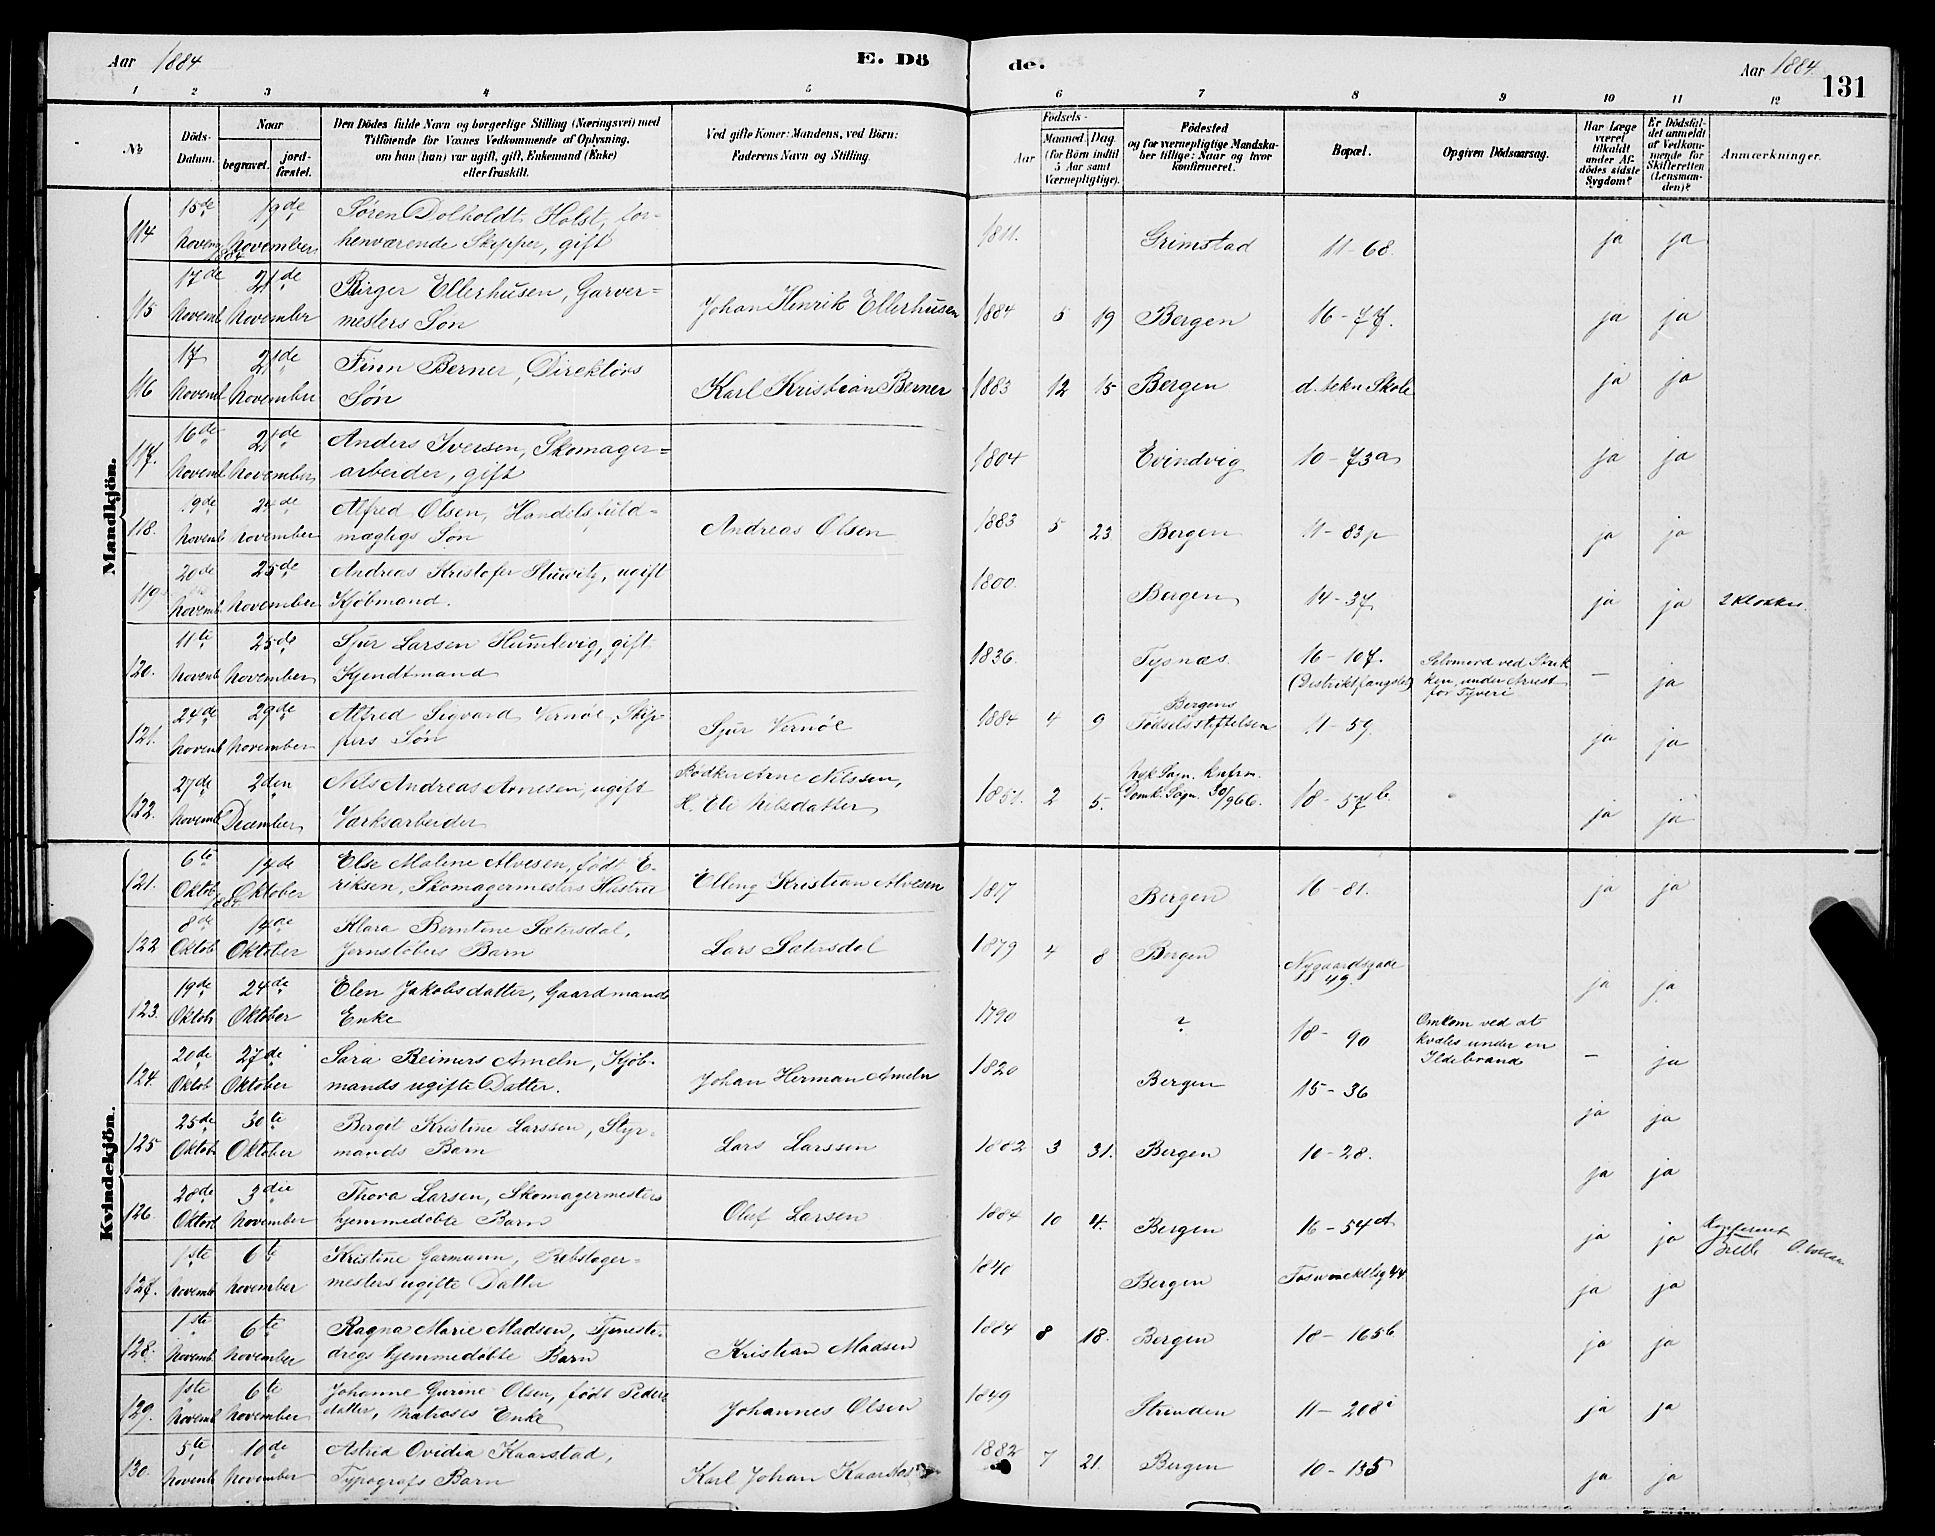 Aar 1884
E. Dö
de.
Aar 1884.
131
1 2 3 4 5
6 7 8 9 10 11 12
№
Döds-Datum.
Naar
begravet. jord-fæstet.
Den Dödes fulde Navn og borgerlige Stilling (Næringsvei) med
Tilföiende for Voxnes Vedkommende af Oplysning,
om han (hun) var ugift, gift, Enkemand (Enke)
eller fraskilt.
Ved gifte Koner: Mandens, ved Börn:
Faderens Navn og Stilling.
Födsels-
Aar Maaned Dag
(for Börn indtil
5 Aar samt
Værnepligtige).
Födested
og for værnepligtige Mandska-
ber tillige: Naar og hvor
konfirmeret.
Bopæl.
Opgiven Dödsaarsag.
Har Læge
været
tilkaldt
under Af-
dödes sidste
Sygdom?
Er Dödsfal-
det anmeldt
af Vedkom-
mende for
Skifteretten
(Lensman-
den)?
Anmærkninger.
Mandkjön.
15de 19de Søren Dolholdt Holst, for-
114 Novemb 1884 November henværende Skipper, gift 1811. Grimstad 11-68. ja ja
17de 21de Birger Ellerhusen, Garver=
115 Novemb November mesters Søn Johan Henrik Ellerhusen 1884 5 19 Bergen 16-77. ja ja
17 21de Finn Berner, Direktørs
116 Novemb November Søn Karl Kristian Berner 1883 12 15 Bergen d. tekn Skole ja ja
16de 21de Anders Iversen, Skomager=
117. Novemb November arbeider, gift 1804 Evindvig 10-73a ja ja
19de 24de Alfred Olsen, Handelsfuld-
118. Novemb November mægtigs Søn Andreas Olsen 1883 5 23 Bergen 11-83p ja ja
20de 25de Andreas Kristofer Sturvitz, ugift
119 Novemb November Kjøbmand. 1800. Bergen 14-37 ja ja 2 klokker.
11te 25de Sjur Larsen Humlevig, gift
120. Novemb November Kjendtmand 1836. Tysnæs 16-107. (Distriktsfængslet) Selvmord ved Strik
ken, under Arrest
for Tyveri — ja
24de 29de Alfred Sigvard Vernøe, Skip-
121. Novemb November pers Søn Sjur Vernöe 1884 4 9 Bergens
Fødselsstiftelsen 11-59. ja ja
27de 2den Nils Andreas Arnesen, ugift Arne Nilssen,
122. Novemb December Værksarbeider Nilsdatter 1851. 2 5. Nyk. Sogn. Knfrm.
Domk. Sogn. 30/9 66. 18-57b. ja ja
Kvindekjön.
6te 14de Else Malene Alvesen, født E-
121. Oktob 1884 Oktober riksen, Skomagermesters Hustru Elling Kristian Alvesen 1817 Bergen 16-81. ja ja
8de 14de Klara Berntine Sætersdal,
122 Oktob Oktober Jernstøbers Barn Lars Sætersdal 1879 4 8 Bergen Nygaardsgade
49. ja ja
19de 24de Elen Jakobsdatter, Gaardmands
123. Oktob Oktober Enke 1790 ? 18-90 Omkom ved at
kvæles under en
Ildebrand — ja
20de 27de Sara Reimers Ameln, Kjøb-
124. Oktob Oktober mands ugifte Datter. Johan Herman Ameln 1820 Bergen 15-36 ja ja
25de 30te Bergit Kristine Larssen, Styr-
125 Oktob Oktober mands Barn Lars Larssen 1882 3 31. Bergen 10-28. ja ja
28de 3die Thora Larsen, Skomagermesters
126. Oktob November hjemmedøbte Barn Oluf Larsen 1884 10 4. Bergen 16-54A ja ja
1ste 6te Kristine Garmann, Rebslager-
127. Novemb November mesters ugifte Datter 1840 Bergen ja ja
1ste 6te Ragna Marie Madsen, Tjeneste-
128. Novemb November dregs hjemmedøbte Barn Kristian Madsen 1884 8 18. Bergen 18-165b ja ja
1ste 6te Johanne Gurine Olsen, født Peders
129. Novemb November datter, Matroses Enke Johannes Olsen 1849 Stranden 11-208i ja ja
5te 10de Astrid Ovidia Kaarstad,
130. Novemb November Typografs Barn Karl Johan Kaarstad 1882 7 21. Bergen 10-135 ja ja